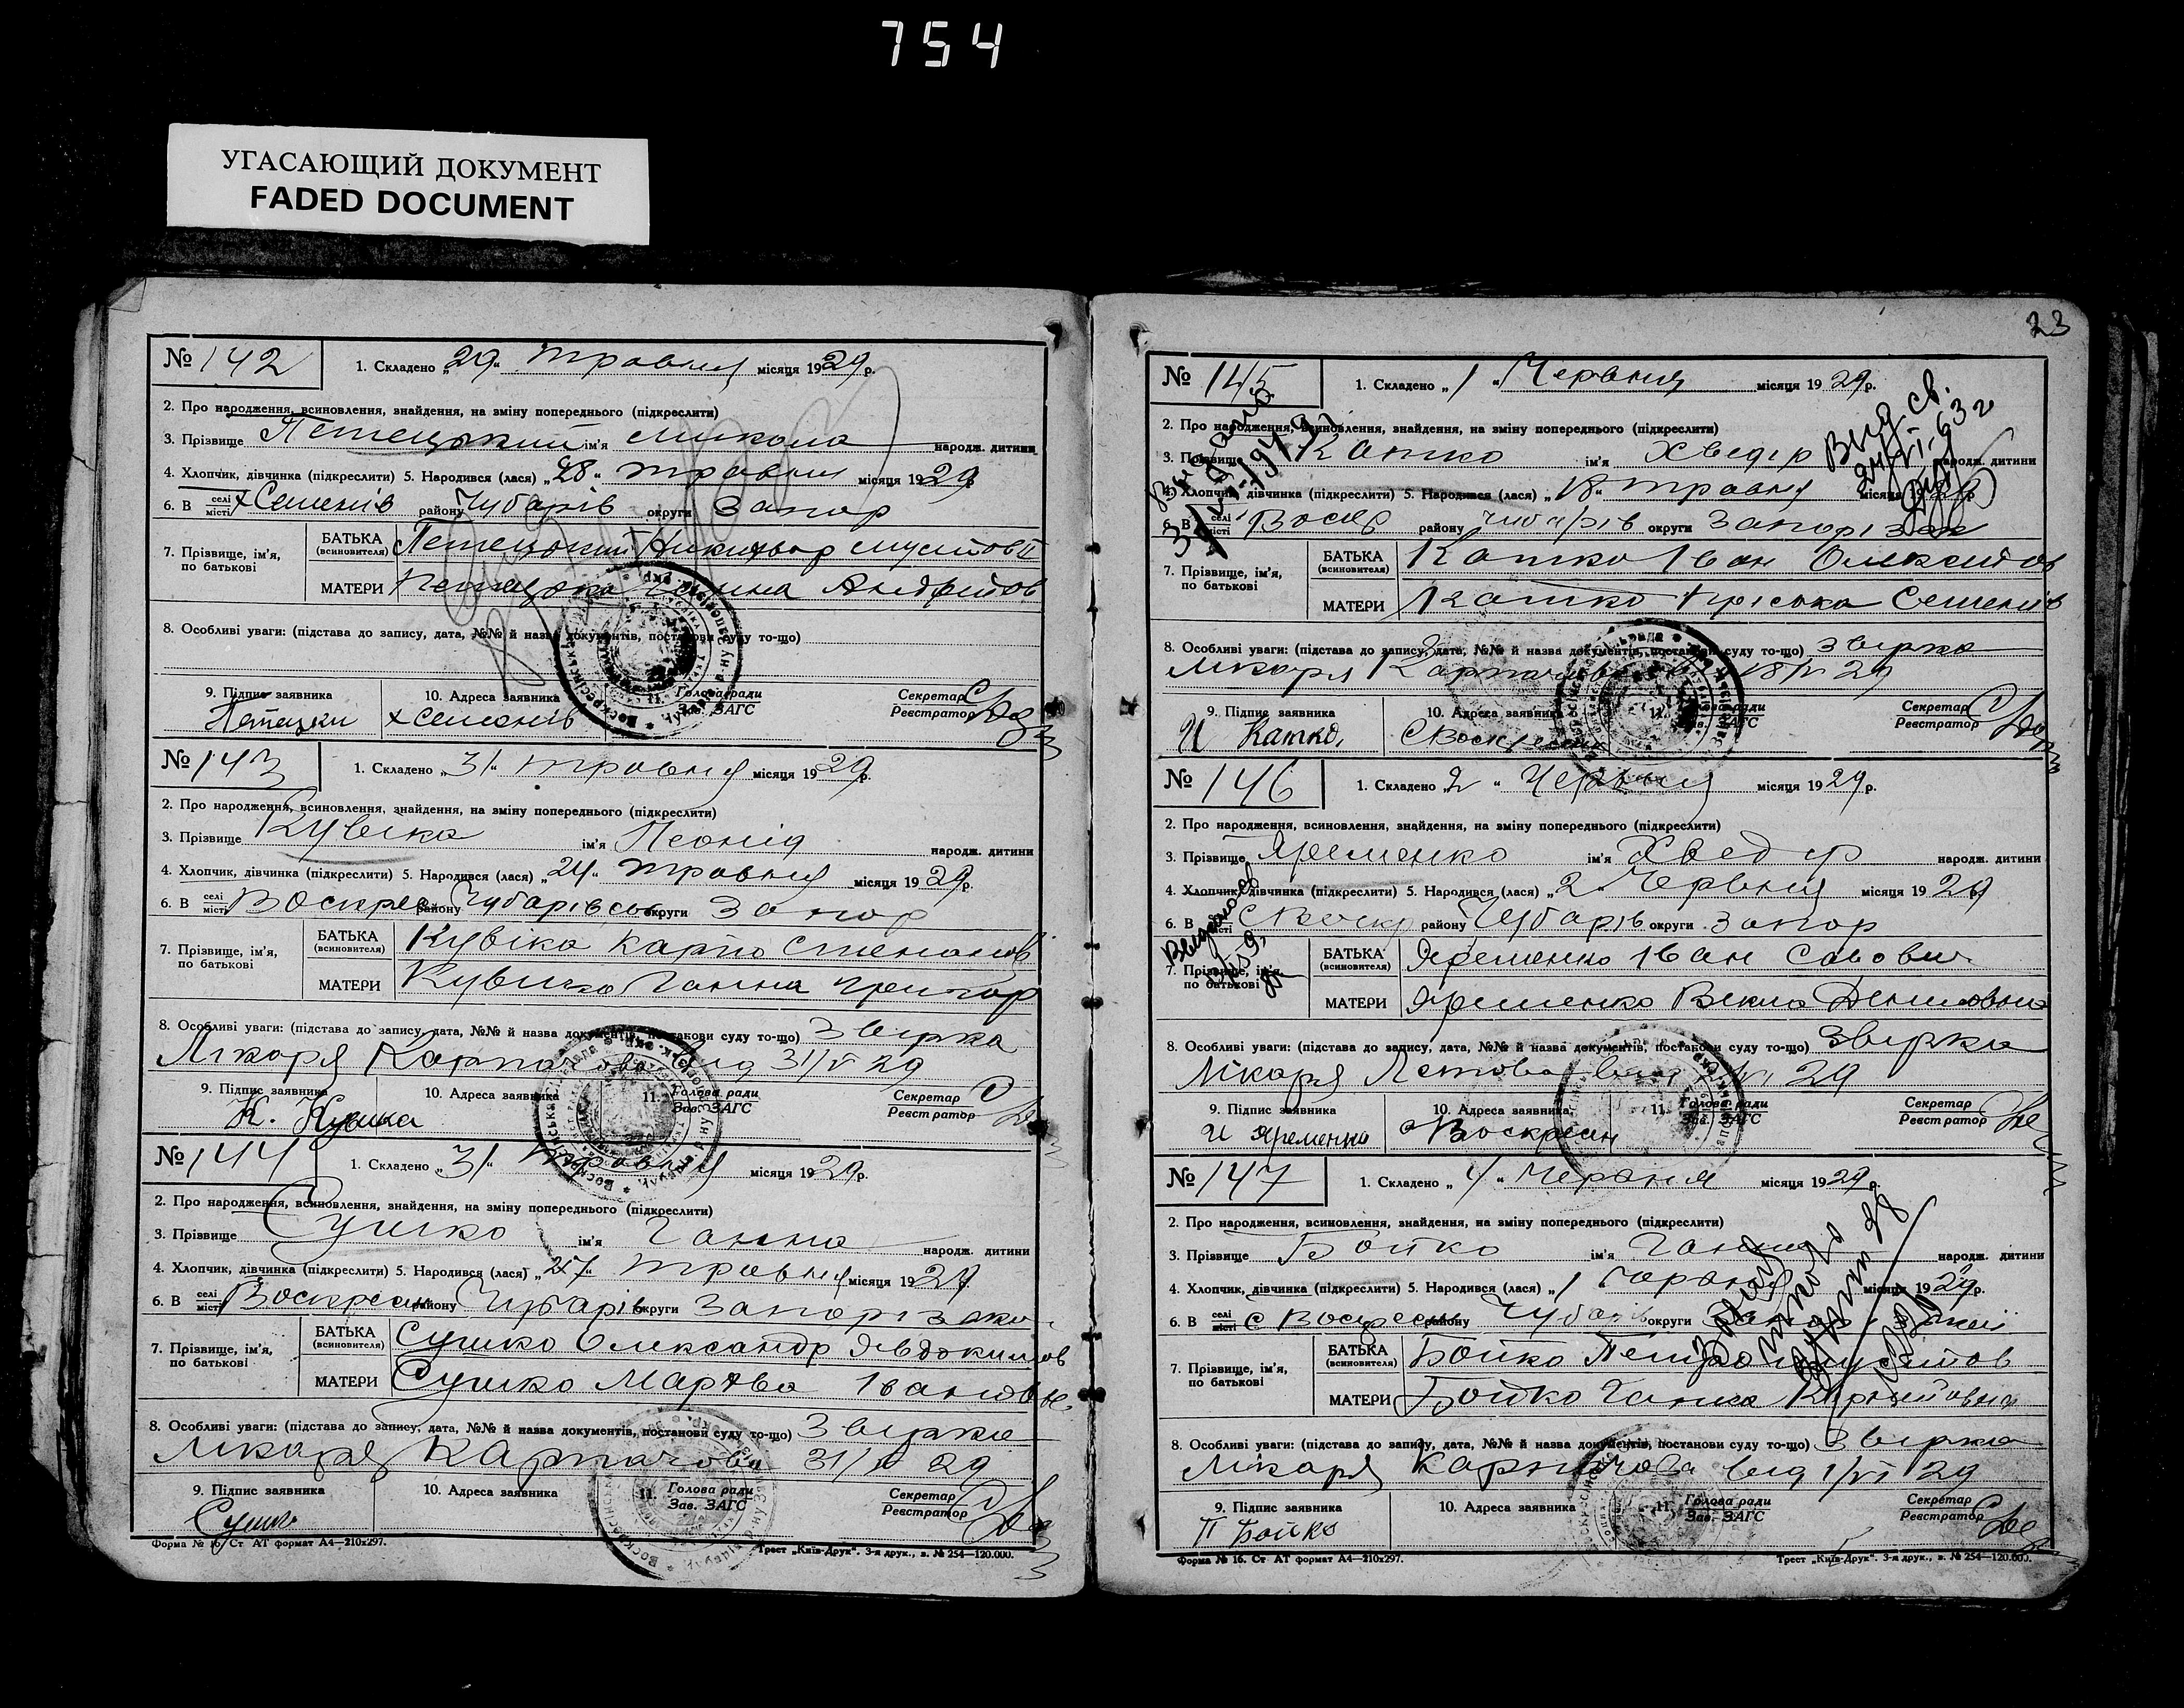 754
УГАСАЮЩИЙ ДОКУМЕНТ
FADED DOCUMENT
№ 142
1. Складено „29“ травня місяця 1929 р.
2. Про народження, всиновлення, знайдення, на зміну попереднього (підкреслити)
3. Прізвище Петецький ім'я Микола народж. дитини
4. Хлопчик, дівчинка (підкреслити) 5. Народився (лася) „28“ травня місяця 1929
6. В селі місті х Семенів району Чубарів округи Запор
7. Прізвище, ім'я, по батькові
БАТЬКА (всиновителя) Петецький
МАТЕРИ Андрійов
8. Особливі уваги: (підстава до запису, дата, №№ й назва документів, постанови суду то-що)
9. Підпис заявника
10. Адреса заявника х Семенів
11. Голова ради Зав. ЗАГС
Секретар Реєстратор
№ 143
1. Складено „31“ травня місяця 1929 р.
2. Про народження, всиновлення, знайдення, на зміну попереднього (підкреслити)
3. Прізвище Кувіка ім'я Леонід народж. дитини
4. Хлопчик, дівчинка (підкреслити) 5. Народився (лася) „24“ травня місяця 1929 р.
6. В селі місті Воскрес району Чубарівськ округи Запор
7. Прізвище, ім'я, по батькові
БАТЬКА (всиновителя) Кувіка Карпо Степанов
МАТЕРИ Ганна Григор
8. Особливі уваги: (підстава до запису, дата, №№ й назва документів, постанови суду то-що) Звірка
Лікаря Карпачова від 31/V 29
9. Підпис заявника К.
10. Адреса заявника
11. Голова ради Зав. ЗАГС
Секретар Реєстратор
№ 144
1. Складено „31“ травня місяця 1929 р.
2. Про народження, всиновлення, знайдення, на зміну попереднього (підкреслити)
3. Прізвище Сушко ім'я Ганна народж. дитини
4. Хлопчик, дівчинка (підкреслити) 5. Народився (лася) „27“ травня місяця 1929
6. В селі місті Воскресен району Чубарів округи Запорізько
7. Прізвище, ім'я, по батькові
БАТЬКА (всиновителя) Сушко Олександр Явдокимов
МАТЕРИ Сушко Мархва Івановна
8. Особливі уваги: (підстава до запису, дата, №№ й назва документів, постанови суду то-що) Звірка
Лікаря Карпачова 31/V 29
9. Підпис заявника Сушко
10. Адреса заявника
11. Голова ради Зав. ЗАГС
Секретар Реєстратор
Форма № 16. Ст АТ формат А4—210х297.
Трест „Київ-Друк“. 3-я друк., з. № 254—120.000.
23
№ 145
1. Складено „1“ Червня місяця 1929 р.
2. Про народження, всиновлення, знайдення, на зміну попереднього (підкреслити)
3. Прізвище Катко ім'я Хведір народж. дитини
Выд. св.
24/VI-63 г
4. Хлопчик, дівчинка (підкреслити) 5. Народився (лася) „18“ травня місяця
6. В селі місті Воскр району Чубарів округи Запорізьк
7. Прізвище, ім'я, по батькові
БАТЬКА (всиновителя) Катко Іван Олексійов
МАТЕРИ Катко Пріська Семенів
8. Особливі уваги: (підстава до запису, дата, №№ й назва документів, постанови суду то-що) Звірка
Лікаря Карпачова 18/V 29
9. Підпис заявника И Катко.
10. Адреса заявника
11. Голова ради Зав. ЗАГС
Секретар Реєстратор
№ 146
1. Складено „2“ Червня місяця 1929 р.
2. Про народження, всиновлення, знайдення, на зміну попереднього (підкреслити)
3. Прізвище Яременко ім'я Хведір народж. дитини
4. Хлопчик, дівчинка (підкреслити) 5. Народився (лася) „2 Червня місяця 1929
6. В селі місті С Воскр району Чубарів округи Запор
7. Прізвище, ім'я, по батькові
БАТЬКА (всиновителя) Яременко Іван Савови
МАТЕРИ Яременко Векла Денисовна
8. Особливі уваги: (підстава до запису, дата, №№ й назва документів, постанови суду то-що) Звірка
Лікаря 29
9. Підпис заявника И Яременко
10. Адреса заявника с Воскресен
11. Голова ради Зав. ЗАГС
Секретар Реєстратор
№ 147
1. Складено „4“ Червня місяця 1929 р.
2. Про народження, всиновлення, знайдення, на зміну попереднього (підкреслити)
3. Прізвище Бойко ім'я Ганна народж. дитини
4. Хлопчик, дівчинка (підкреслити) 5. Народився (лася) „1 червня місяця 1929 р.
6. В селі місті С Воскресен району Чубарів округи
7. Прізвище, ім'я, по батькові
БАТЬКА (всиновителя) Бойко Петро
МАТЕРИ Бойко Ганна
8. Особливі уваги: (підстава до запису, дата, №№ й назва документів, постанови суду то-що) Звірка
Лікаря Карпачова від 1/VI 29
9. Підпис заявника П Бойко
10. Адреса заявника
11. Голова ради Зав. ЗАГС
Секретар Реєстратор
Форма № 16. Ст АТ формат А4—210х297.
Трест „Київ-Друк“. 3-я друк., з. № 254—120.000.